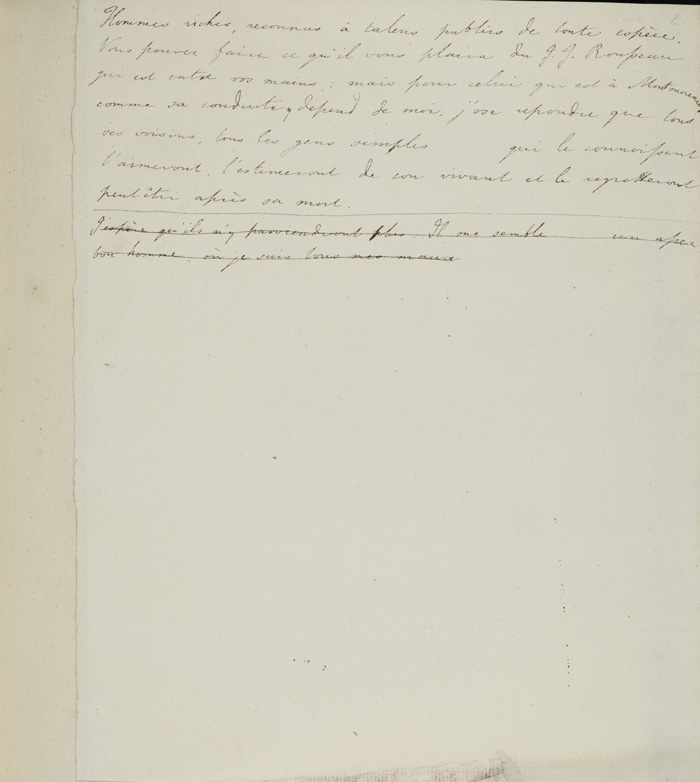 2
Hommes riches, reconnus à talens publics de toute espèce.
Vous pouvez faire ce qu'il vous plaira du J. J. Rousseau
qui est entre vos mains : mais pour celui qui est à Montmorenci
comme sa conduite y depend de moi, j'ose repondre que tous
ses voisins, tous les gens simples qui le connoissent
l'aimeront, l'estimeront de son vivant et le regretteront
peut être après sa mort.
J'espère qu'ils n'y parviendront plus. Il me semble un assez
bon homme où je suis tous mes maux